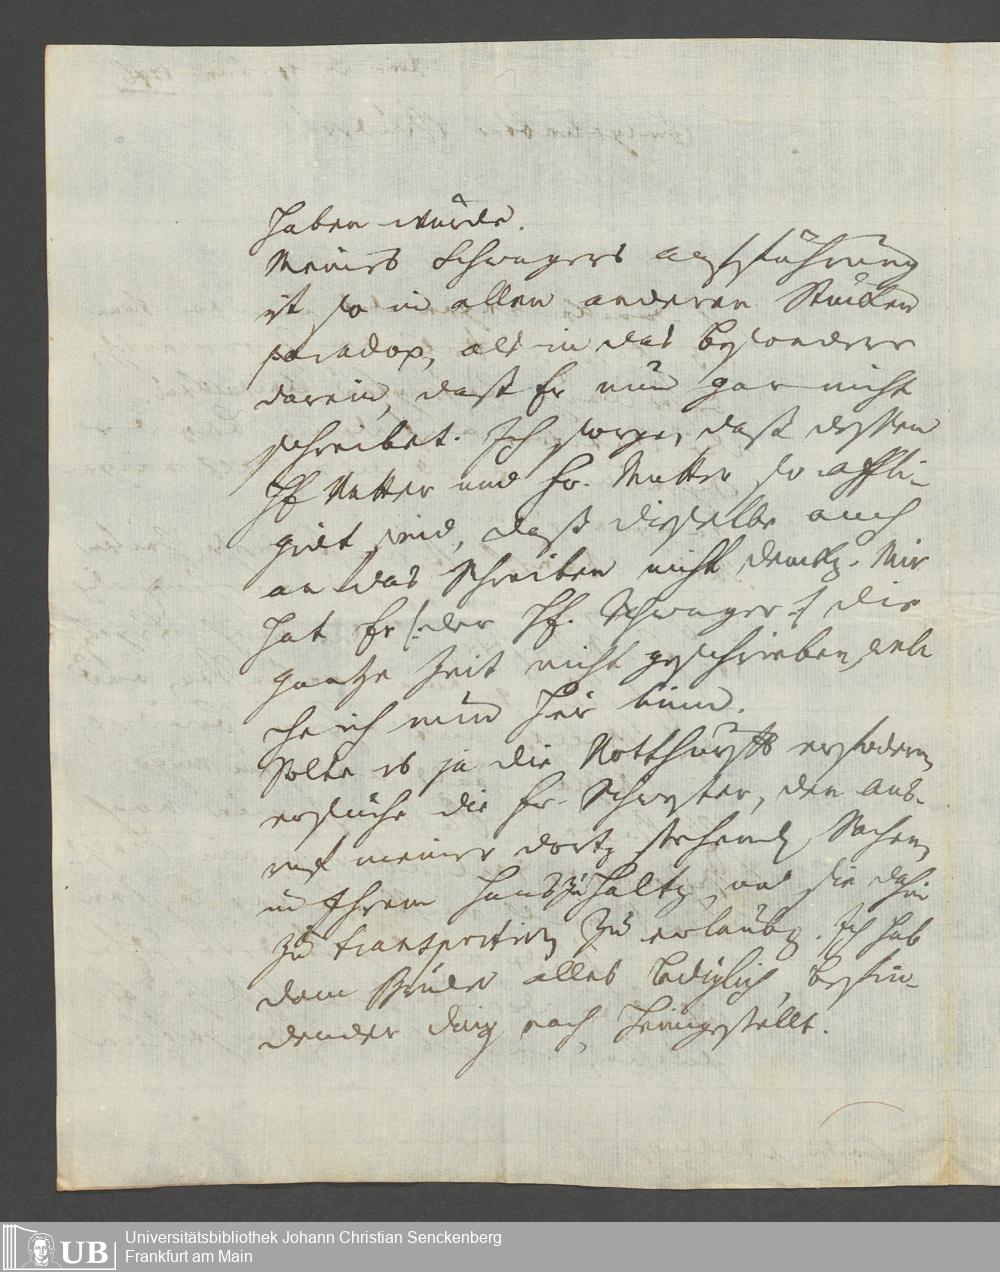 haben würde.
Meines Schwagers aufführung
ist so in allen anderen Stücken
paradox, als in das besondere
darein, daß Er nun gar nicht
schreibet. Ich sorge, daß dessen
Hf Vatter und Fr. Mutter so affli-
girt sind, daß dieselbe auch
an das Schreiben nicht denckn. Mir
hat Er /: der Hf. Schwager :/ die
gantze Zeit nicht geschrieben, wel
che ich nun hier bin.
Solte es ja die Notthurfft erfodern,
ersuche die Fr. Schwester, den aus-
ruf meiner dortn stehendn Sachen,
in Ihrem Haus zu haltn, und sie dahin
zu transportirn zu erlaubn. Ich hab
dem Bruder alles lediglich, befin-
dender Ding nach, heimgestellt.
Universitätsbibliothek Johann Christian Senckenberg
Frankfurt am Main
UB